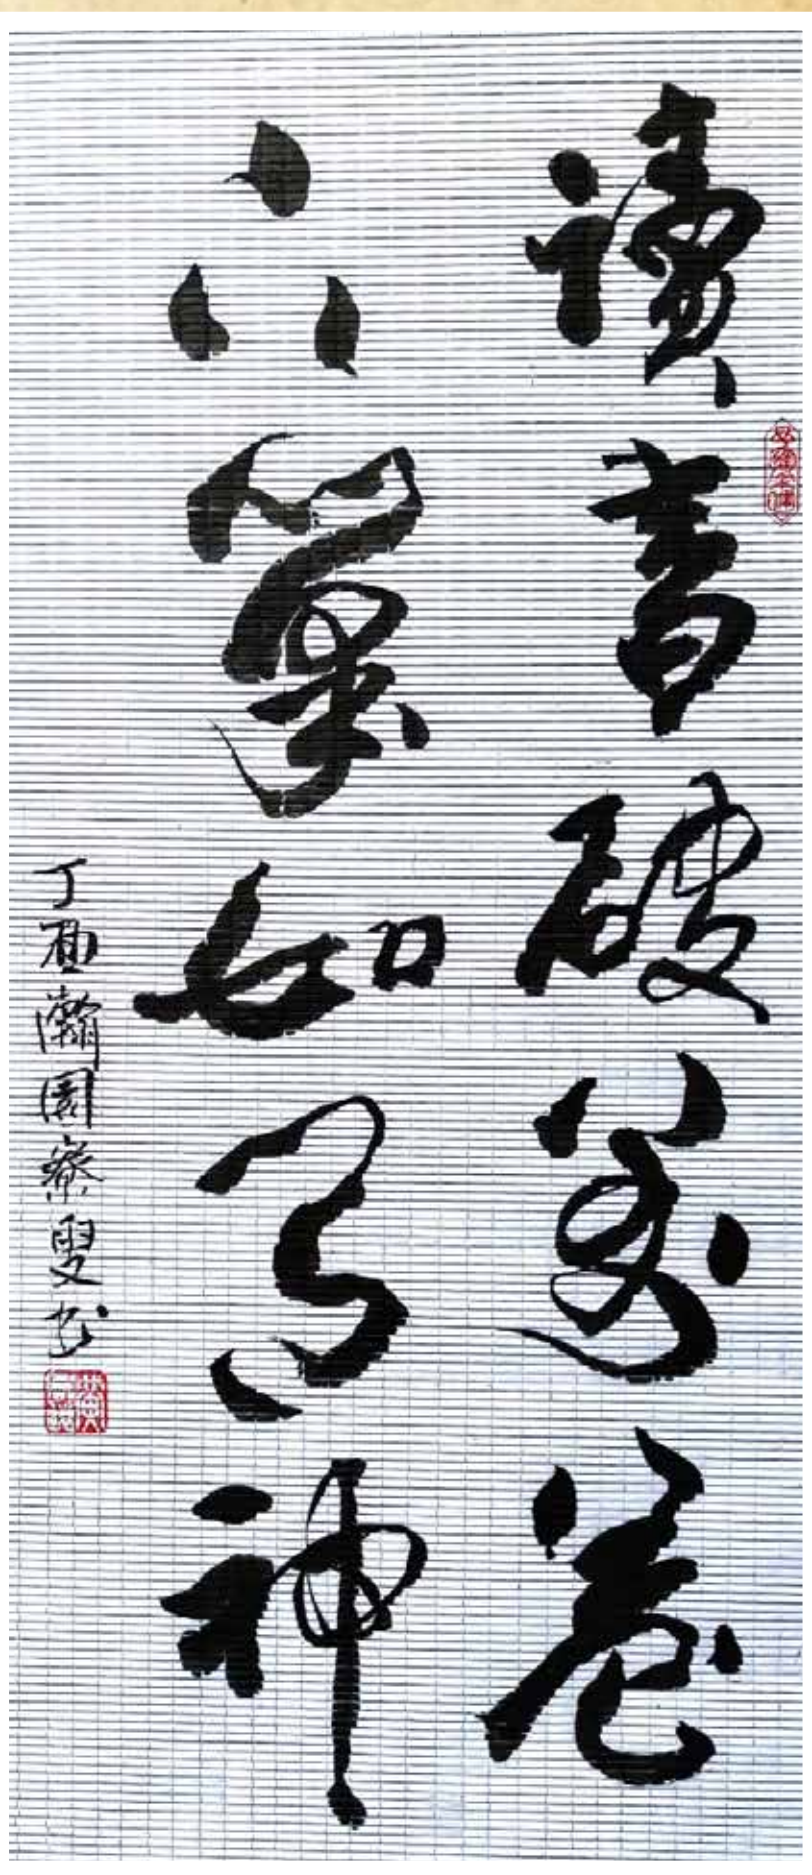 讀書破萬卷
下筆如有神
丁酉瀚園寮叟书